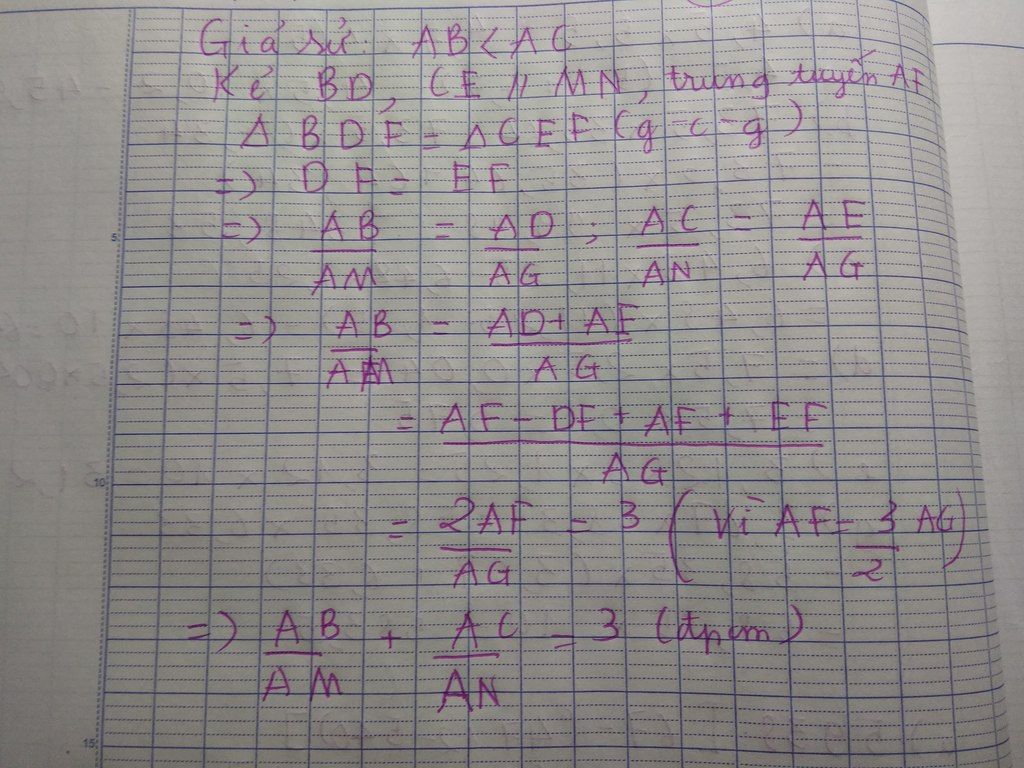 Giả sử AB < AC
Kẻ BD, CE // MN, trung tuyến AF
Δ BDF = Δ CEF (g-c-g)
=> DF = EF
=> AB/AM = AD/AG ; AC/AN = AE/AG
=> AB/AM = AD + AE/AG
= AF - DF + AF + EF/AG
= 2AF/AG = 3 (Vì AF = 3/2 AG)
=> AB/AM + AC/AN = 3 (đpcm)
5
10
15